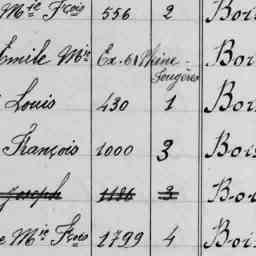 Mie Frois 556 2 Boi
Émile Mie Ex. 61 Rhine - Boi
Fougères
Louis 430 1 Boi
François 1000 3 Bois
Joseph 1186 3 Boi
e Mie Frois 1799 4 Bois